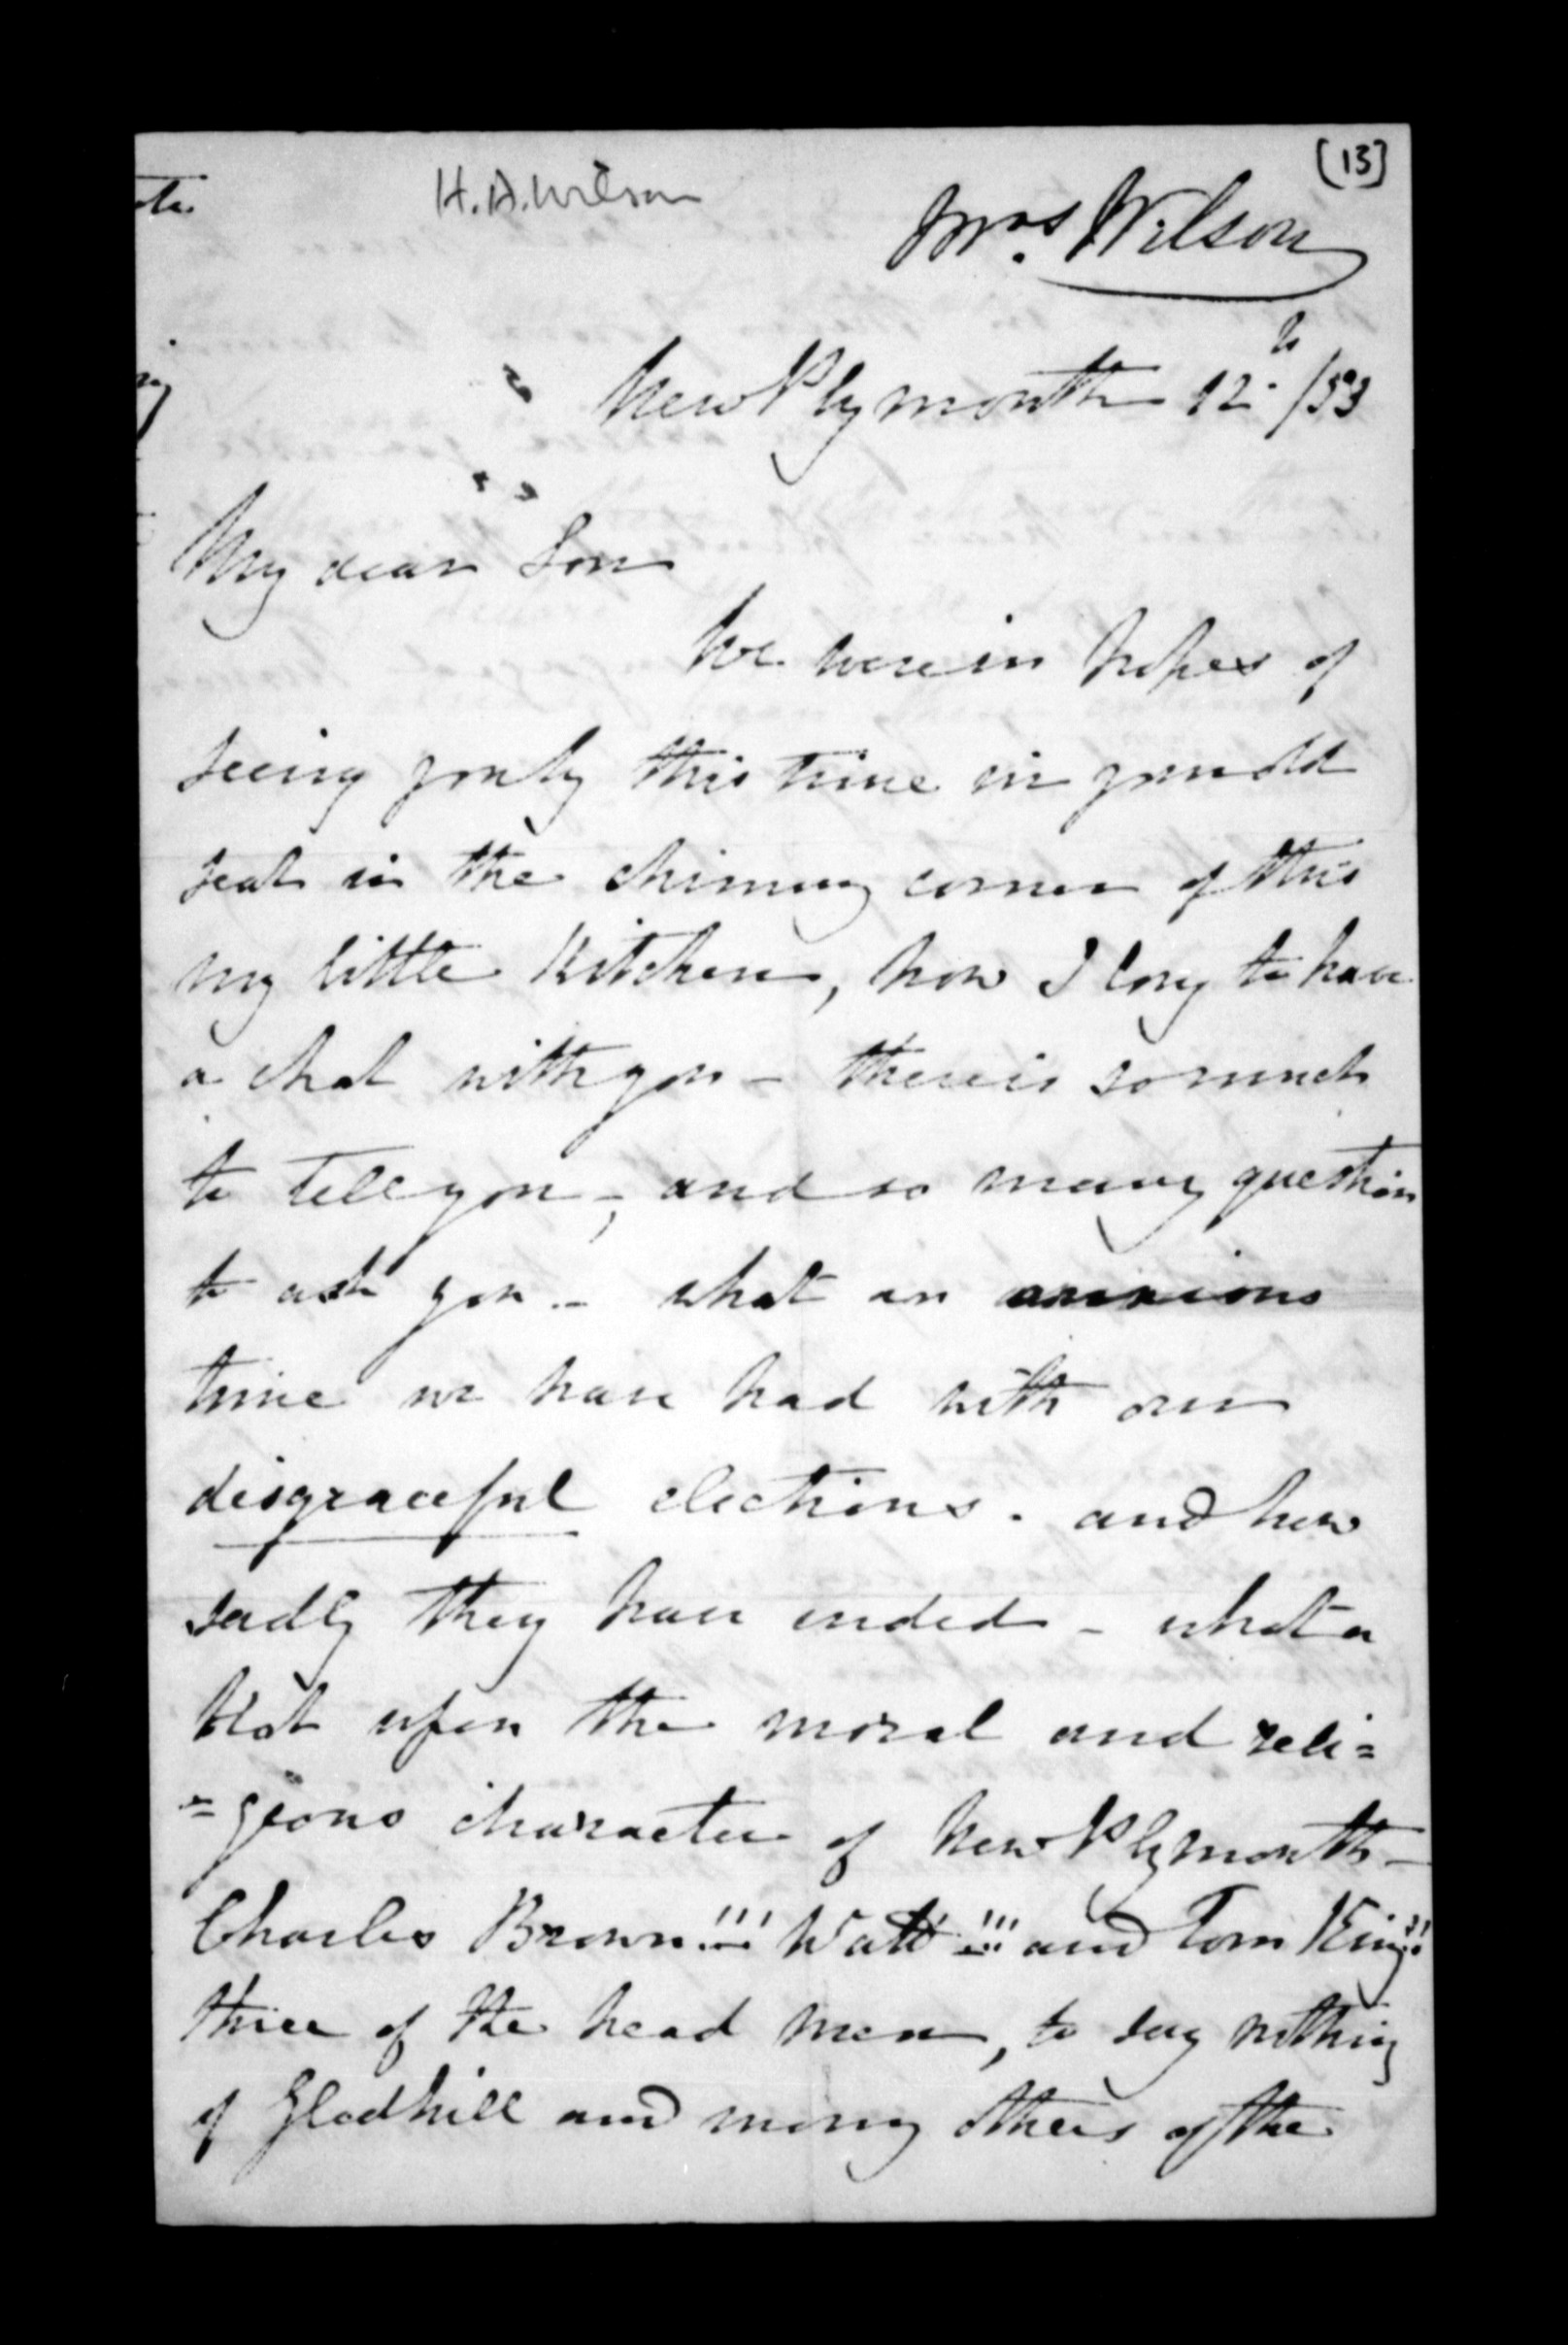 [13]
H.A. Wilson
Mrs. Wilson
New Plymouth 12.th /53
My dear Son
We were in hopes of
seeing you by this time in your old
seat in the chimney corner of this
my little Kitchen, how I long to have
a chat with you - there is so much
to tell you -, and so many question
to ask you - what an anxious
time we have had with our
disgraceful elections. and how
sadly they have ended - what a
blot upon the moral and reli=
=gious character of New Plymouth -
Charles Brown!!! Watt!!! and Tom King!!!
three of the head men, to say nothing
of Gledhill and many others of the